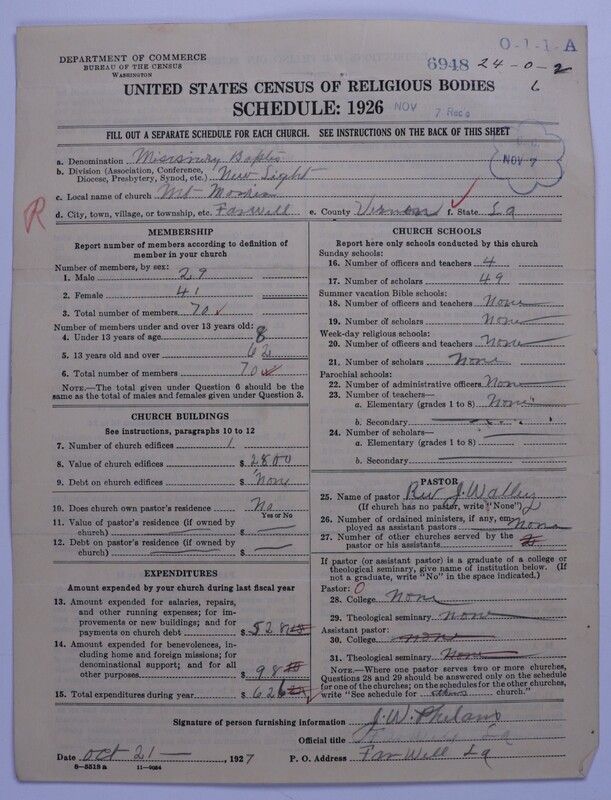 O-1-1-A
DEPARTMENT OF COMMERCE
BUREAU OF THE CENSUS
WASHINGTON
6948 24-0-2
UNITED STATES CENSUS OF RELIGIOUS BODIES
SCHEDULE: 1926 NOV 7 Rec'd
FILL OUT A SEPARATE SCHEDULE FOR EACH CHURCH. SEE INSTRUCTIONS ON THE BACK OF THIS SHEET
NOV 7
a. Denomination Missinery Baptis
b. Division (Association, Conference, Diocese, Presbytery, Synod, etc.) New Light
c. Local name of church Mt
d. City, town, village, or township, etc. Farwill e. County Vernon f. State La
R
MEMBERSHIP
Report number of members according to definition of
member in your church
Number of members, by sex:
1. Male 29
2. Female 41
3. Total number of members 70
Number of members under and over 13 years old:
4. Under 13 years of age 8
5. 13 years old and over 62
6. Total number of members 70
NOTE.—The total given under Question 6 should be the
same as the total of males and females given under Question 3.
CHURCH BUILDINGS
See instructions, paragraphs 10 to 12
7. Number of church edifices 1
8. Value of church edifices $ 2800
9. Debt on church edifices $ None
10. Does church own pastor's residence No
Yes or No
11. Value of pastor's residence (if owned by
church) $
12. Debt on pastor's residence (if owned by
church) $
EXPENDITURES
Amount expended by your church during last fiscal year
13. Amount expended for salaries, repairs,
and other running expenses; for im-
provements or new buildings; and for
payments on church debt $ 528
14. Amount expended for benevolences, in-
cluding home and foreign missions; for
denominational support; and for all
other purposes $ 98
15. Total expenditures during year $ 626
CHURCH SCHOOLS
Report here only schools conducted by this church
Sunday schools:
16. Number of officers and teachers 4
17. Number of scholars 49
Summer vacation Bible schools:
18. Number of officers and teachers None
19. Number of scholars None
Week-day religious schools:
20. Number of officers and teachers None
21. Number of scholars None
Parochial schools:
22. Number of administrative officers None
23. Number of teachers—
a. Elementary (grades 1 to 8) None
b. Secondary
24. Number of scholars—
a. Elementary (grades 1 to 8)
b. Secondary
PASTOR
25. Name of pastor Rev J. Walley
(If church has no pastor, write "None")
26. Number of ordained ministers, if any, em-
ployed as assistant pastors None
27. Number of other churches served by the
pastor or his assistants
If pastor (or assistant pastor) is a graduate of a college or
theological seminary, give name of institution below. (If
not a graduate, write "No" in the space indicated.)
Pastor: 0
28. College None
29. Theological seminary none
Assistant pastor:
30. College none
31. Theological seminary None
NOTE.—Where one pastor serves two or more churches,
Questions 28 and 29 should be answered only on the schedule
for one of the churches; on the schedules for the other churches,
write "See schedule for church."
Signature of person furnishing information J. W.
Official title
Date Oct 21 , 1927 P. O. Address Far Will La
8—5518 a 11—9024